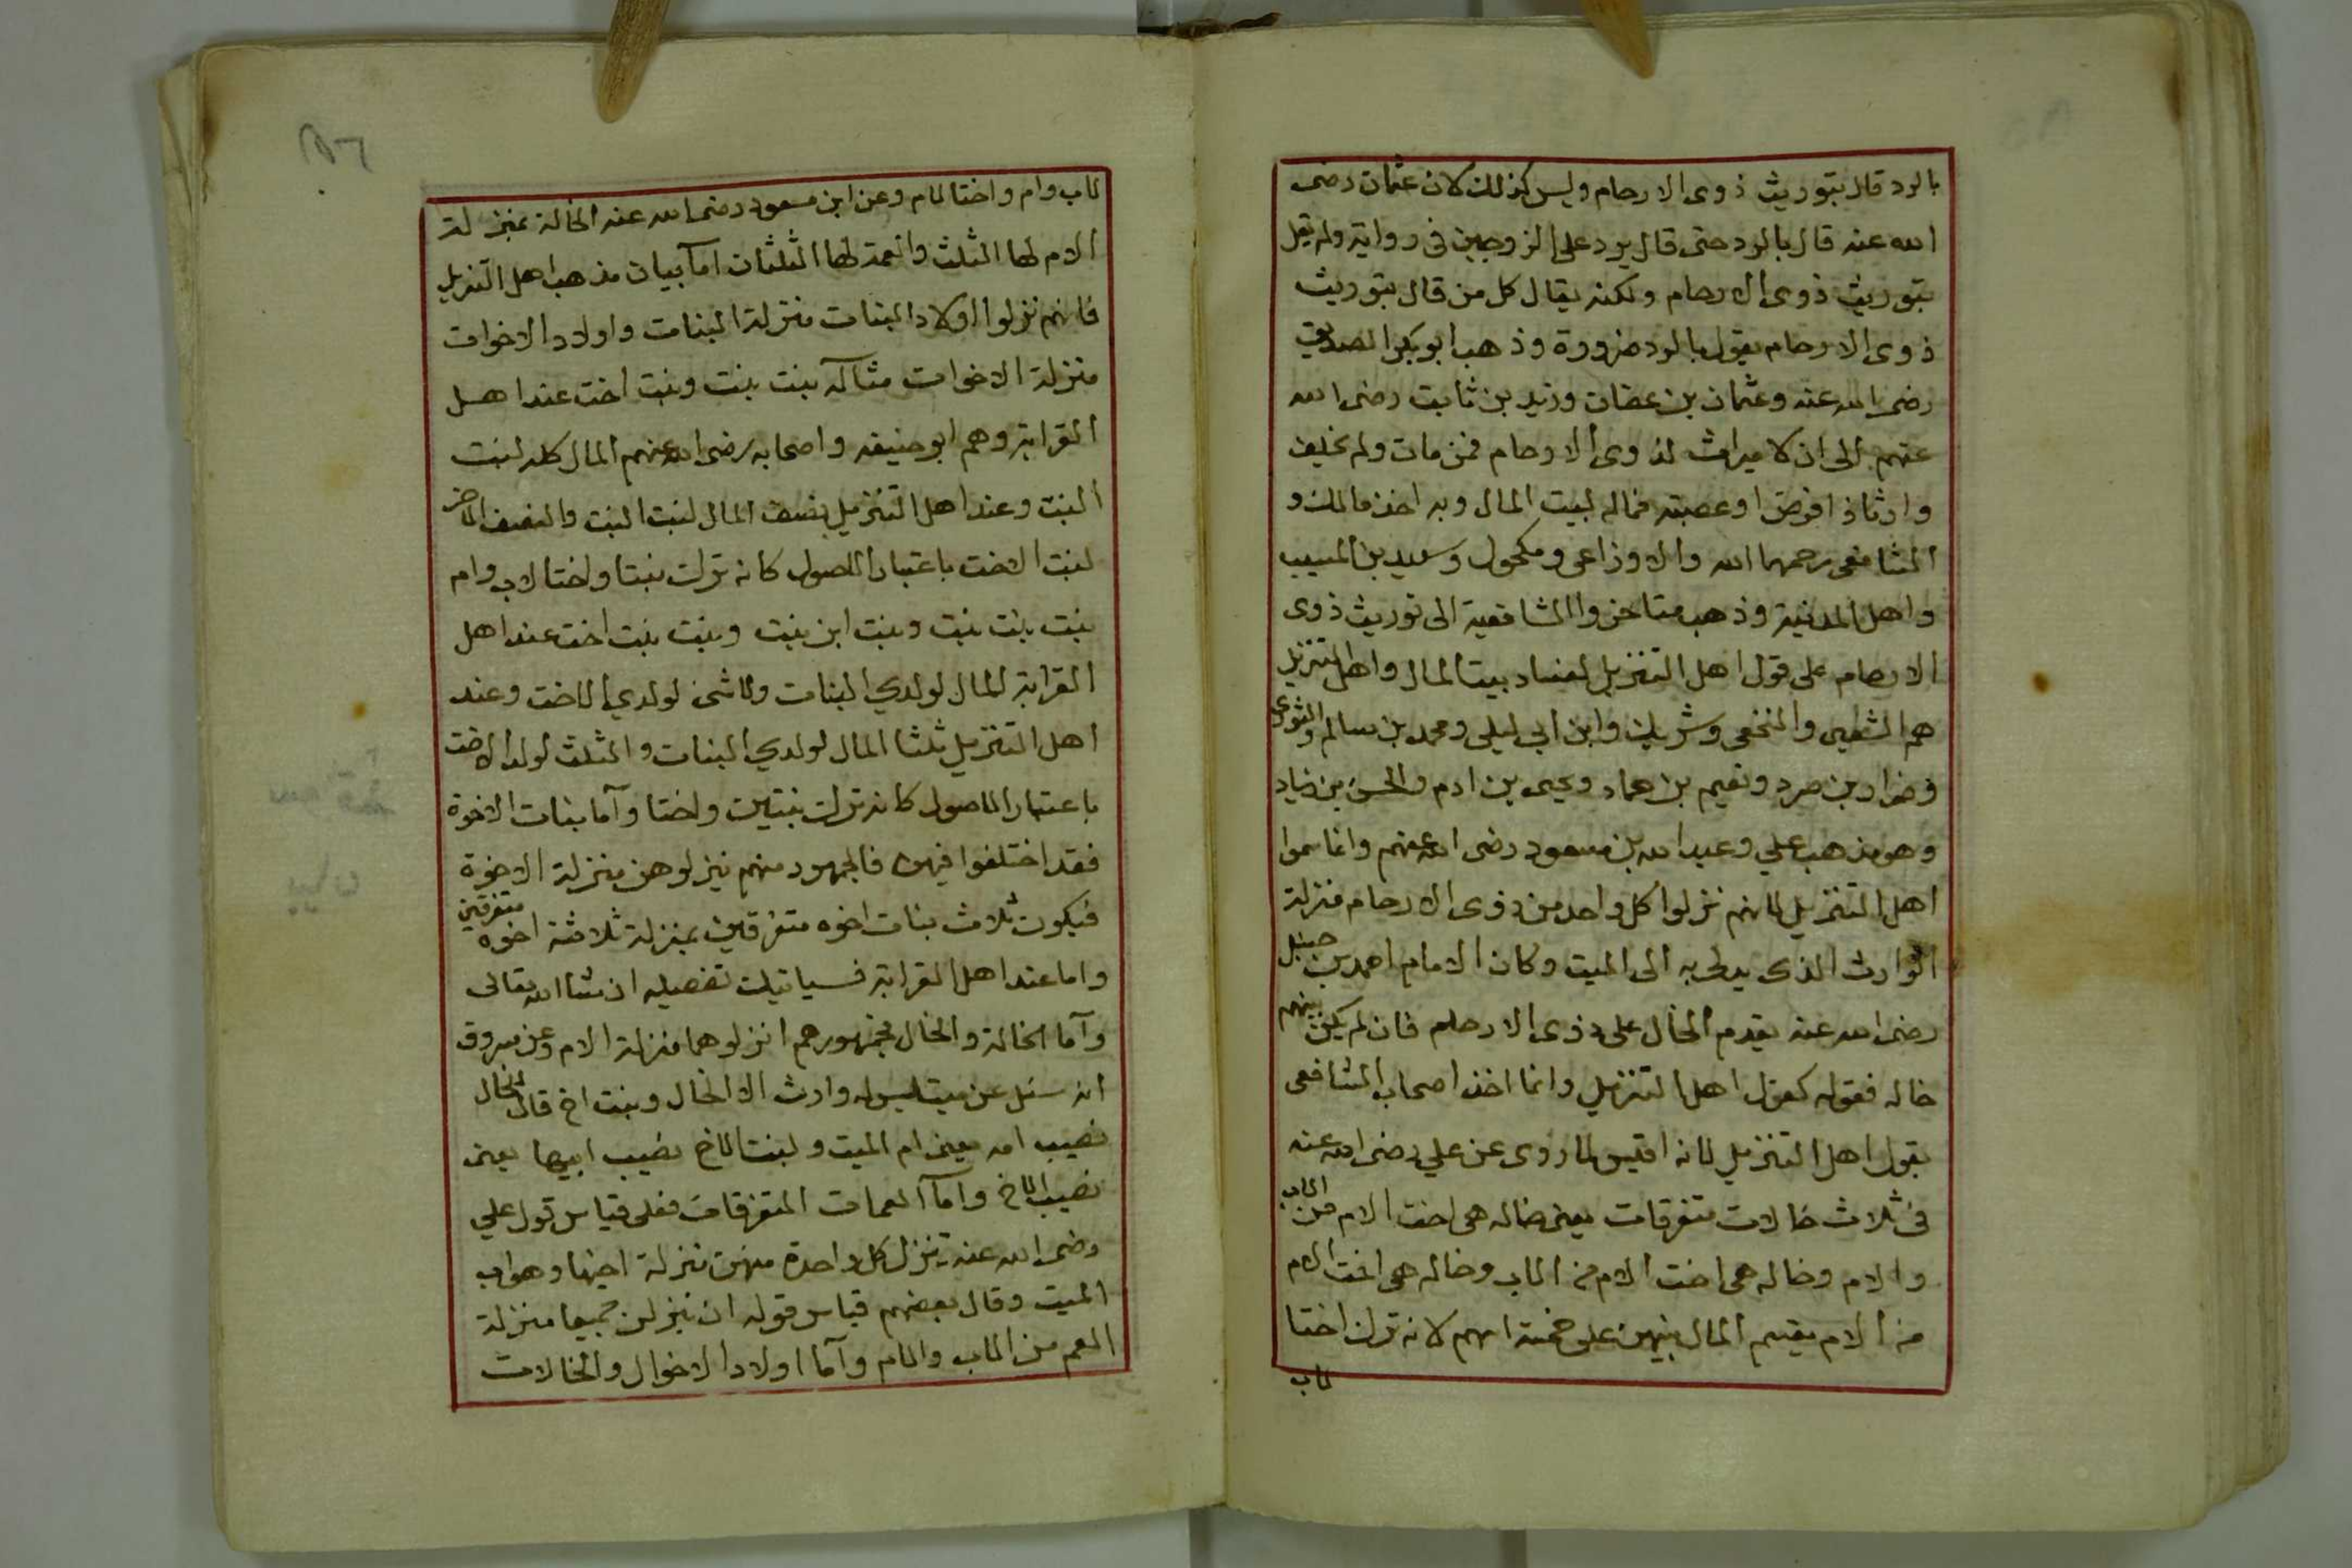 بالرد قال بتوريث ذوى الارحام وليس كذلك لان عثمان رضى
الله عنه قال بالرد حتى قال يرد على الزوجين فى رواية ولم يقل
بتوريث ذوى الارحام ولكنه يقال كل من قال بتوريث
ذوى الارحام يقول بالرد ضرورة وذهب ابو بكر الصديق
رضى الله عنه وعثمان بن عفان وزيد بن ثابت رضى الله
عنهم الى ان لا ميراث لذوى الارحام فمن مات ولم يخلف
وارثا ذا فرض او عصبته فماله لبيت المال وبه اخذ مالك و
الشافعى رحمهما الله والاوزاعى ومكحول وسعيد بن المسيب
واهل المدينة وذهب متاخروا الشافعية الى توريث ذوى
الارحام على قول اهل التنزيل لفساد بيت المال واهل التنزيل
هم الشعبى والنخعى وشريك وابن ابى ليلى ومحمد بن سالم والثورى
وضرار بن صرد ونعيم بن حماد ويحيى بن ادم والحسن بن زياد
وهو مذهب علي وعبد الله بن مسعود رضى الله عنهم وانما سموا
اهل التنزيل لانهم نزلوا كل واحد من ذوى الارحام منزلة
الوارث الذى يدلى به الى الميت وكان الامام احمد بن حنبل
رضى الله عنه يقدم الخال على ذوى الارحام فان لم يكن بينهم
خاله فقوله كقول اهل التنزيل وانما اخذ اصحاب الشافعى
بقول اهل التنزيل لانه اقيس لما روى عن علي رضى الله عنه
فى ثلاث خالات متفرقات يعنى خاله هى اخت الام من الاب
والام وخاله هى اخت الام من الاب وخاله هى اخت الام
من الام يقسم المال بينهن على خمسة اسهم لانه ترك اختا
لاب
لاب وام واختا لام وعن ابن مسعود رضى الله عنه الخالة بمنزلة
الام لها الثلث والعمة لها الثلثان اما بيان مذهب اهل التنزيل
فانهم نزلوا اولاد البنات منزلة البنات واولاد الاخوات
منزلة الاخوات مثاله بنت بنت وبنت اخت عند اهل
القرابة وهم ابو حنيفه واصحابه رضى الله عنهم المال كله لبنت
البنت وعند اهل التنزيل نصف المال لبنت البنت والنصف الاخر
لبنت الاخت باعتبار الاصول كانه ترك بنتا واختا لاب وام
بنت بنت بنت وبنت ابن بنت وبنت بنت اخت عند اهل
القرابة المال لولدي البنات ولا شئ لولدي الاخت وعند
اهل التنزيل ثلثا المال لولدي البنات والثلث لولد الاخت
باعتبار الاصول كانه ترك بنتين واختا وآما بنات الاخوة
فقد اختلفوا فيهن فالجمهور منهم نيزلوهن منزلة الاخوة
فيكون ثلاث بنات اخوه متفرقين بمنزلة ثلاثة اخوه متفرقين
واما عند اهل القرابة فسياتيك تفصيله ان شا الله تعالى
وآما الخالة والخال فجمهورهم انزلوهما منزلة الام وعن مسروق
انه سئل عن ميت ليس له وارث الا الخال وبنت اخ قال للخال
نصيب امه يعنى ام الميت ولبنت الاخ نصيب ابيها يعنى
نصيب الاخ وآما العمات المتفرقات فعلى قياس قول علي
رضى الله عنه تنزل كل واحدة منهن منزلة اخيها وهو اب
الميت وقال بعضهم قياس قوله ان نيزلن جميعا منزلة
العم من الاب والام وآما اولاد الاخوال والخالات